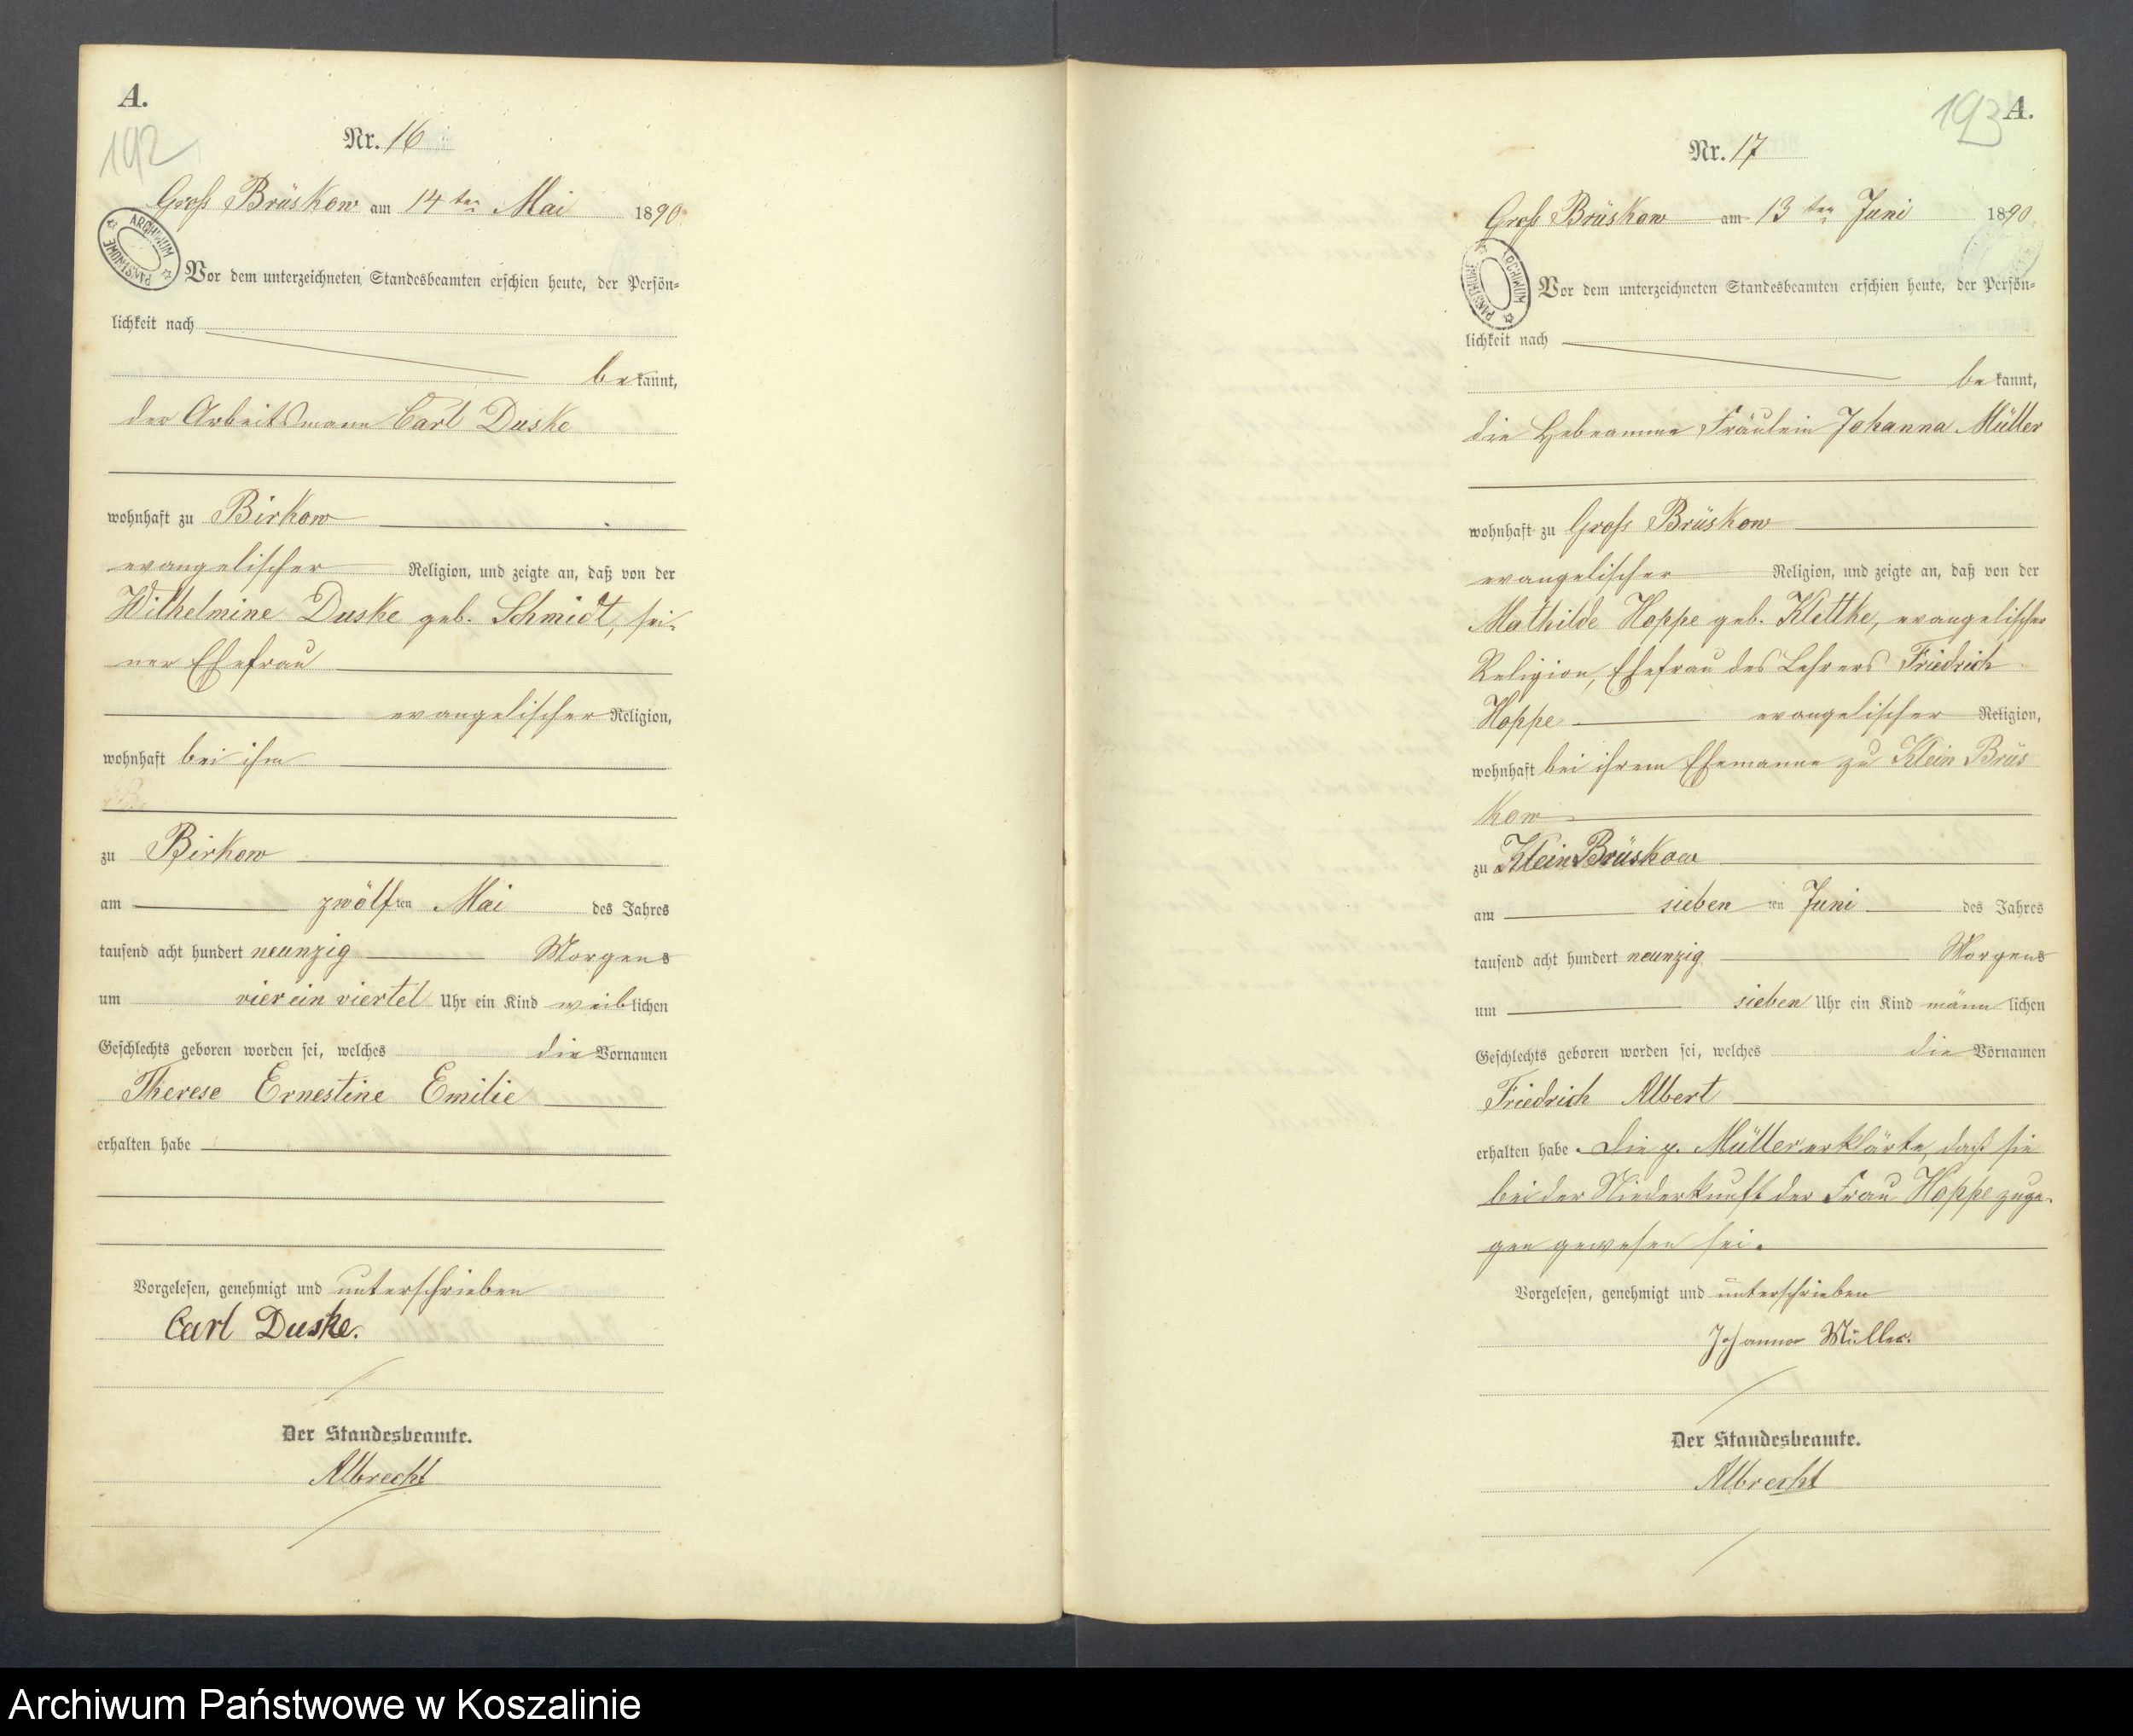 A.
192
Nr. 16
Groß Brüskow am 14ten Mai 1890
ARCHIWUM PAŃSTWOWE
Vor dem unterzeichneten Standesbeamten erschien heute, der Persön-
lichkeit nach
bekannt,
der Arbeitsmann Carl Duske
wohnhaft zu Birkow
evangelischer Religion, und zeigte an, daß von der
Wilhelmine Duske geb. Schmidt, sei-
ner Ehefrau
evangelischer Religion,
wohnhaft bei ihm
zu Birkow
am zwölften Mai des Jahres
tausend acht hundert neunzig Morgens
um vier ein viertel Uhr ein Kind weiblichen
Geschlechts geboren worden sei, welches die Vornamen
Therese Ernestine Emilie
erhalten habe
Vorgelesen, genehmigt und unterschrieben
Carl Duske.
Der Standesbeamte.
Albrecht
193 A.
Nr. 17
Groß Brüskow am 13ten Juni 1890
ARCHIWUM PAŃSTWOWE
Vor dem unterzeichneten Standesbeamten erschien heute, der Persön-
lichkeit nach
bekannt,
die Hebeamme Fräulein Johanna Müller
wohnhaft zu Groß Brüskow
evangelischer Religion, und zeigte an, daß von der
Mathilde Hoppe geb. Klettke, evangelischer
Religion, Ehefrau des Lehrers Friedrich
Hoppe evangelischer Religion,
wohnhaft bei ihrem Ehemanne zu Klein Brüs
kow
zu Klein Brüskow
am siebenten Juni des Jahres
tausend acht hundert neunzig Morgens
um sieben Uhr ein Kind männlichen
Geschlechts geboren worden sei, welches die Vornamen
Friedrich Albert
erhalten habe. Die p. Müller erklärte, daß sie
bei der Niederkunft der Frau Hoppe zuge-
gen gewesen sei.
Vorgelesen, genehmigt und unterschrieben
Johanna Müller.
Der Standesbeamte.
Albrecht
Archiwum Państwowe w Koszalinie